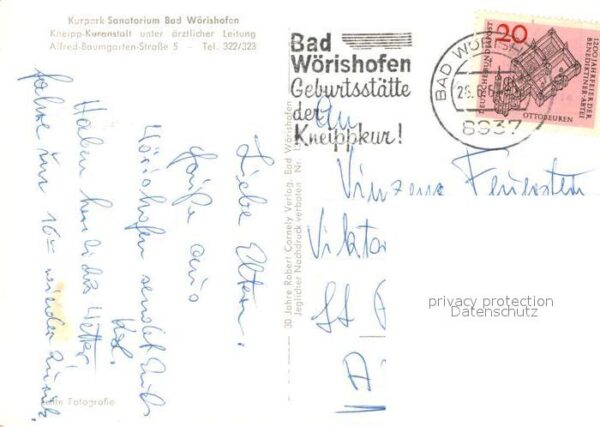 Kurpark Sanatorium Bad Wörishofen
Kneipp-Kuranstalt unter ärztlicher Leitung
Alfred-Baumgarten-Straße 5 - Tel. 322/323
Liebe Eltern.
Grüße aus
Wörishofen sendet Euch
Haben herrliches Wetter
fahre am 16ten wieder zurück.
Echte Fotografie
30 Jahre Robert Cornely Verlag, Bad Wörishofen
Jeglicher Nachdruck verboten Nr.
Bad
Wörishofen
Geburtsstätte
der
Kneippkur!
BAD WÖ
8937
20
DEUTSCHE BUNDESPOST
1200 JAHRFEIER DER
BENEDIKTINER-ABTEI
OTTOBEUREN
An
Vinzenz
Viktor
privacy protection
Datenschutz